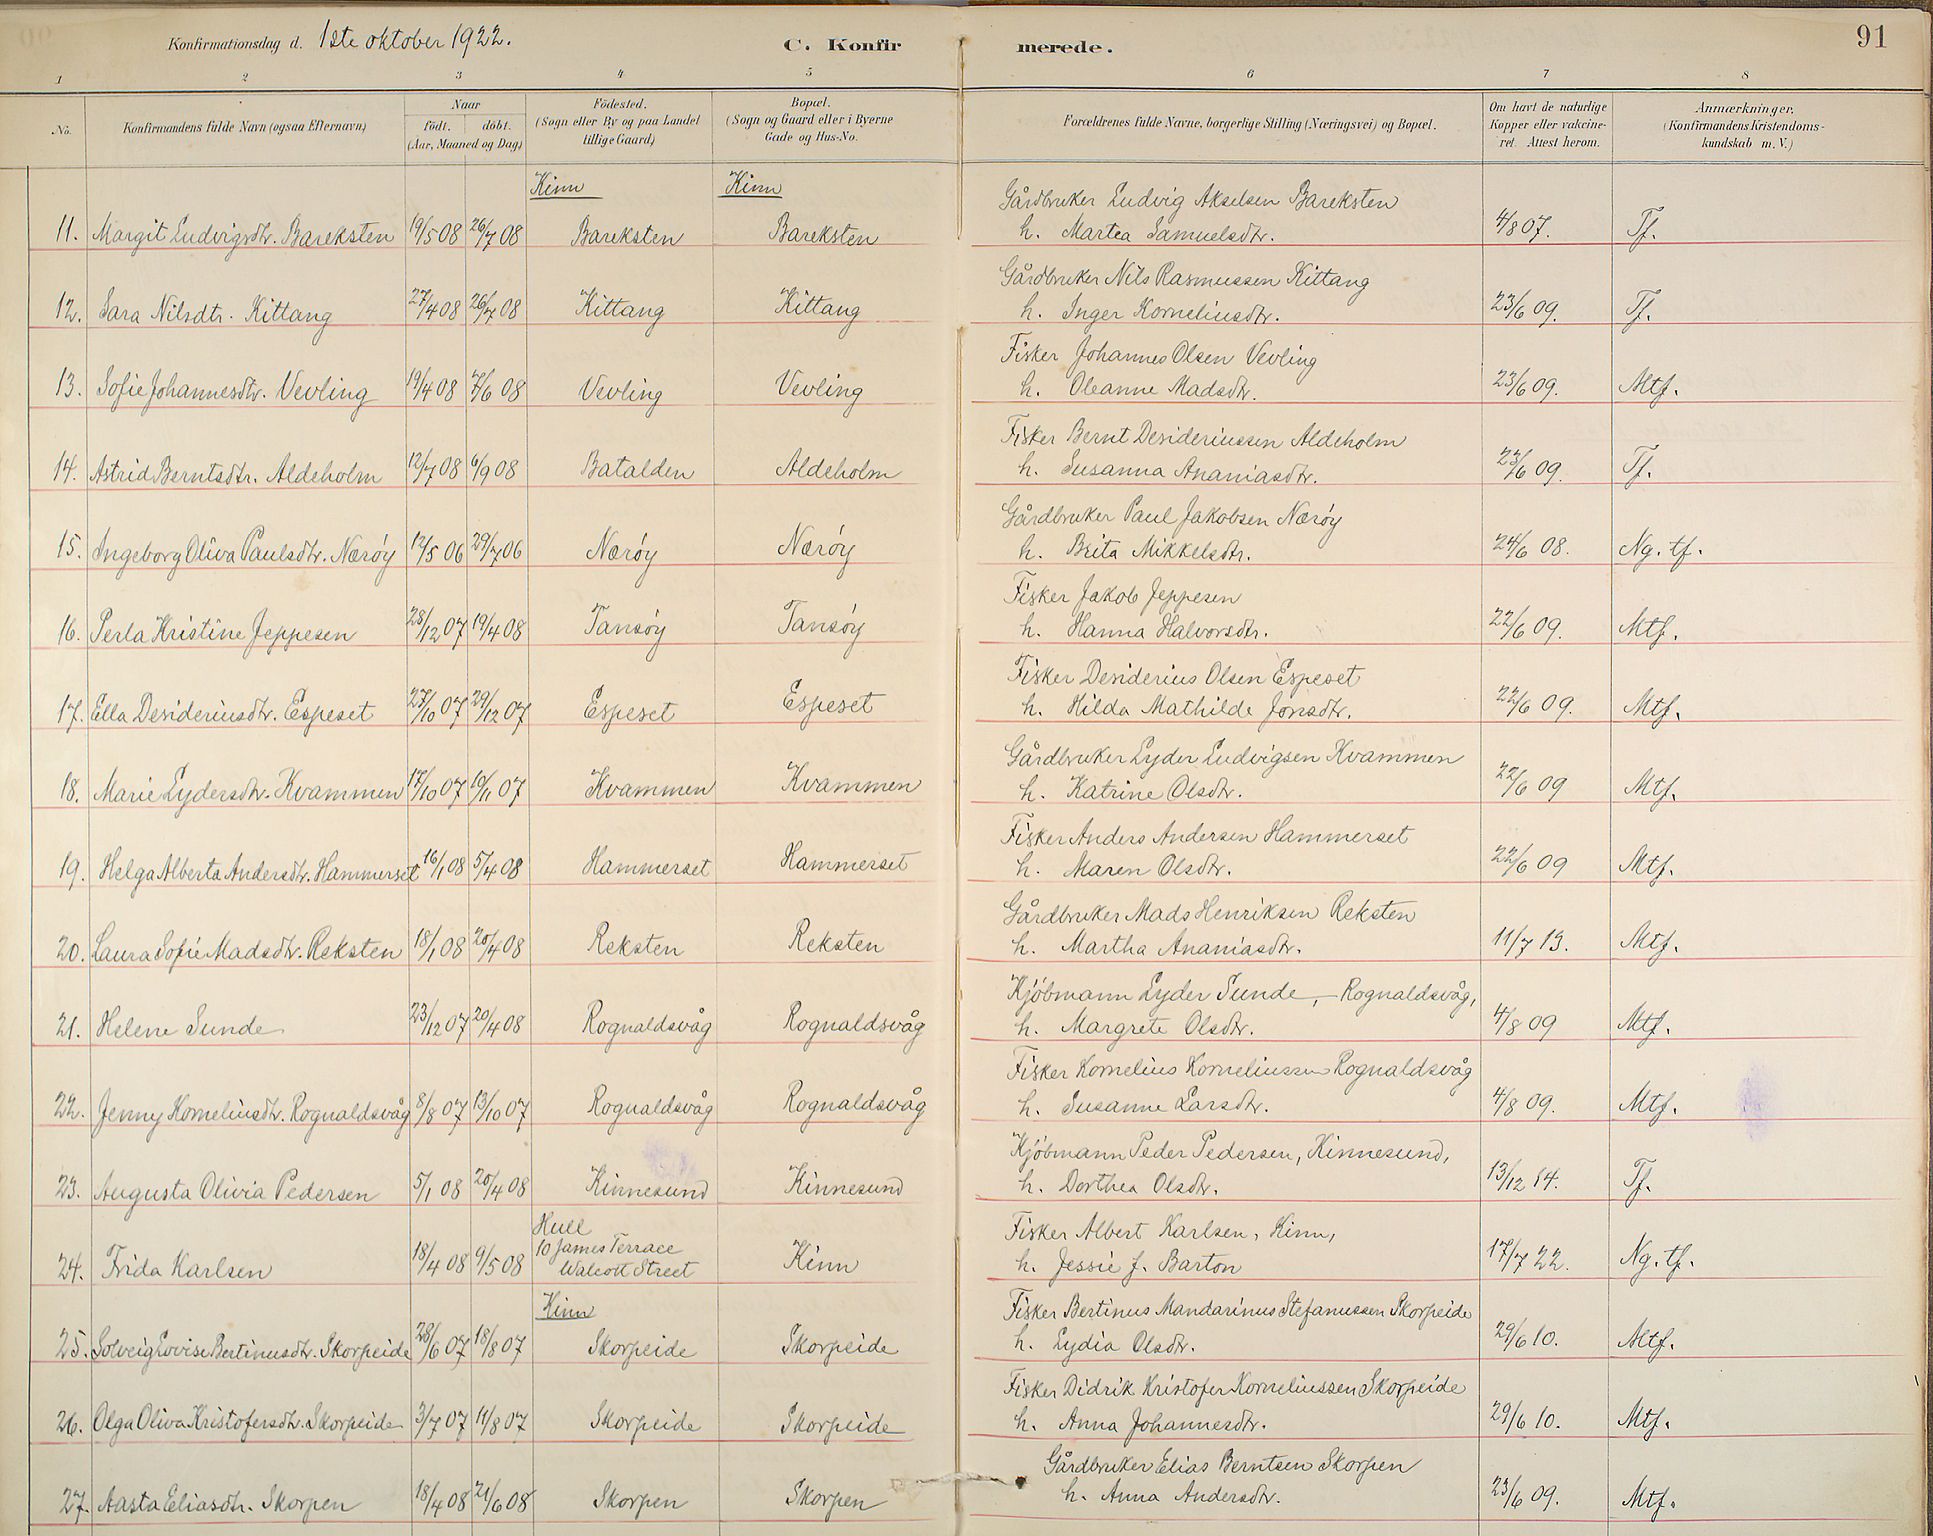 Konfirmationsdag d. 1ste oktober 1922. C. Konfirmerede. 91
1 2 3 4 5 6 7 8
No. Konfirmandens fulde Navn (ogsaa Efternavn) Naar födt. döbt. (Aar, Maaned og Dag) Födested. (Sogn eller By og paa Landet tillige Gaard) Bopæl. (Sogn og Gaard eller i Byerne Gade og Hus-No. Forældrenes fulde Navne, borgerlige Stilling (Næringsvei) og Bopæl. Om havt de naturlige Kopper eller vakcineret. Attest herom. Anmærkninger. (Konfirmandens Kristendomskundskab m. V.)
Kinn Kinn
Gårdbruker Ludvig Akselsen Bareksten
11. Margit Ludvigsdtr. Bareksten 19/5 08 26/7 08 Bareksten Bareksten h. Martea Samuelsdtr. 4/8 07. Tf.
Gårdbruker Nils Rasmussen Kittang
12. Sara Nilsdtr. Kittang 27/4 08 26/7 08 Kittang Kittang h. Inger Korneliusdtr. 23/6 09. Tf.
Fisker Johannes Olsen Vevling
13. Sofie Johannesdtr. Vevling 19/4 08 7/6 08 Vevling Vevling h. Oleanne Madsdtr. 23/6 09. Mtf.
Fisker Bernt Desideriussen Aldeholm
14. Astrid Berntsdtr. Aldeholm 12/7 08 6/9 08 Batalden Aldeholm h. Susanna Ananiasdtr. 23/6 09. Tf.
Gårdbruker Paul Jakobsen Nærøy
15. Ingeborg Oliva Paulsdtr. Nærøy 12/5 06 29/7 06 Nærøy Nærøy h. Brita Mikkelsdtr. 24/6 08. Ng. tf.
Fisker Jakob Jeppesen
16. Perla Kristine Jeppesen 28/12 07 19/4 08 Tansøy Tansøy h. Hanna Halvorsdtr. 22/6 09. Mtf.
Fisker Desiderius Olsen Espeset
17. Ella Desideriusdtr. Espeset 27/10 07 29/12 07 Espeset Espeset h. Hilda Mathilde Jonsdtr. 22/6 09. Mtf.
Gårdbruker Lyder Ludvigsen Kvammen
18. Marie Lydersdtr. Kvammen 17/10 07 10/11 07 Kvammen Kvammen h. Katrine Olsdtr. 22/6 09 Mtf.
Fisker Anders Andersen Hammerset
19. Helga Alberta Andersdtr. Hammerset 16/1 08 5/4 08 Hammerset Hammerset h. Maren Olsdtr. 22/6 09 Mtf.
Gårdbruker Mads Henriksen Reksten
20. Laura Sofie Madsdtr. Reksten 18/1 08 20/4 08 Reksten Reksten h. Martha Ananiasdtr. 11/7 13. Mtf.
Kjøbmann Lyder Sunde, - Rognaldsvåg,
21. Helene Sunde 23/12 07 20/4 08 Rognaldsvåg Rognaldsvåg h. Margrete Olsdtr. 4/8 09 Mtf.
Fisker Kornelius Korneliussen Rognaldsvåg
22. Jenny Korneliusdtr. Rognaldsvåg 8/8 07 13/10 07 Rognaldsvåg Rognaldsvåg h. Susanne Larsdtr. 4/8 09. Mtf.
Kjøbmann Peder Pedersen, Kinnesund,
23. Augusta Olivia Pedersen 5/1 08 20/4 08 Kinnesund Kinnesund h. Dorthea Olsdtr. 13/12 14. Tf.
Hull
10 James Terrace
Walcott Street
Fisker Albert Karlsen, Kinn,
24. Frida Karlsen 18/4 08 9/5 08 Kinn h. Jessie f. Barton 17/7 22. Ng. tf.
Kinn
Fisker Bertinus Mandarinus Stefanussen Skorpeide
25. Solveig Lovise Bertinusdtr. Skorpeide 28/6 07 18/8 07 Skorpeide Skorpeide h. Lydia Olsdtr. 29/6 10. Mtf.
Fisker Didrik Kristofer Korneliussen Skorpeide
26. Olga Oliva Kristofersdtr. Skorpeide 3/7 07 11/8 07 Skorpeide Skorpeide h. Anna Johannesdtr. 29/6 10. Mtf.
Gårdbruker Elias Berntsen Skorpen
27. Aasta Eliasdtr. Skorpen 18/4 08 21/6 08 Skorpen Skorpen h. Anna Andersdtr. 23/6 09. Mtf.